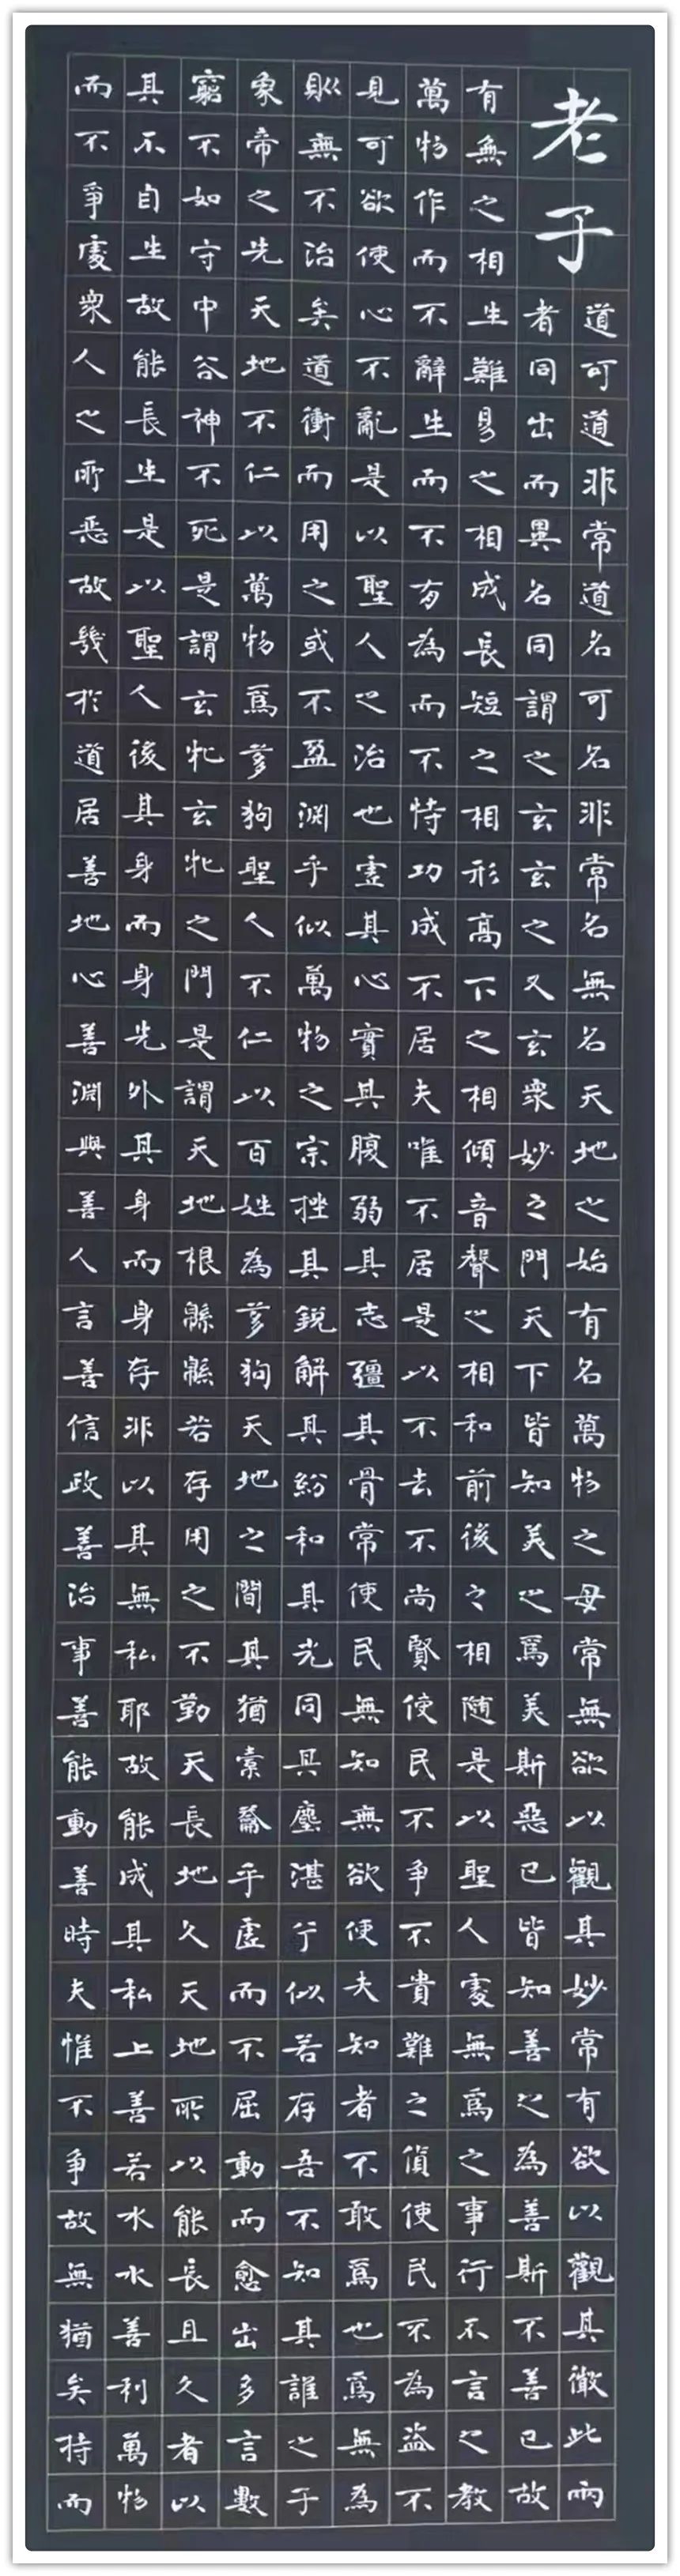 老子
道可道非常道名可名非常名無名天地之始有名萬物之母常無欲以觀其妙常有欲以觀其徼此兩
者同出而異名同謂之玄玄之又玄衆妙之門天下皆知美之爲美斯惡已皆知善之為善斯不善已故
有無之相生難易之相成長短之相形高下之相傾音聲之相和前後之相隨是以聖人處無爲之事行不言之教
萬物作而不辭生而不有為而不恃功成不居夫唯不居是以不去不尚賢使民不爭不貴難之貨使民不為盜不
見可欲使心不亂是以聖人之治也虛其心實其腹弱其志彊其骨常使民無知無欲使夫知者不敢爲也爲無為
則無不治矣道衝而用之或不盈淵乎似萬物之宗挫其銳解其紛和其光同其塵湛兮似若存吾不知其誰之子
象帝之先天地不仁以萬物爲芻狗聖人不仁以百姓為芻狗天地之間其猶橐籥乎虛而不屈動而愈出多言數
窮不如守中谷神不死是謂玄牝玄牝之門是謂天地根緜緜若存用之不勤天長地久天地所以能長且久者以
其不自生故能長生是以聖人後其身而身先外其身而身存非以其無私耶故能成其私上善若水水善利萬物
而不爭處衆人之所惡故幾於道居善地心善淵與善人言善信政善治事善能動善時夫惟不爭故無猶矣持而